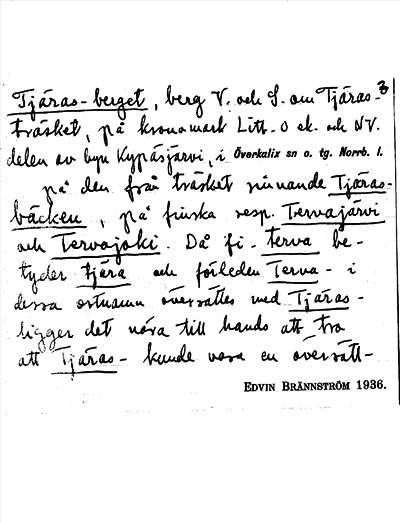 3
Tjäras-berget, berg V. och S. om Tjäras-
träsket, på kronomark Litt. O ek. och NV.
delen av byn Kypäsjärvi, i Överkalix sn o. tg. Norrb. l.
på den från träsket rinnande Tjäras-
bäcken, på finska resp. Tervajärvi
och Tervajoki. Då fi. terva be-
tyder tjära och förleden Terva- i
dessa ortnamn översättes med Tjäras-
ligger det nära till hands att tro
att Tjäras- kunde vara en översätt-
EDVIN BRÄNNSTRÖM 1936.